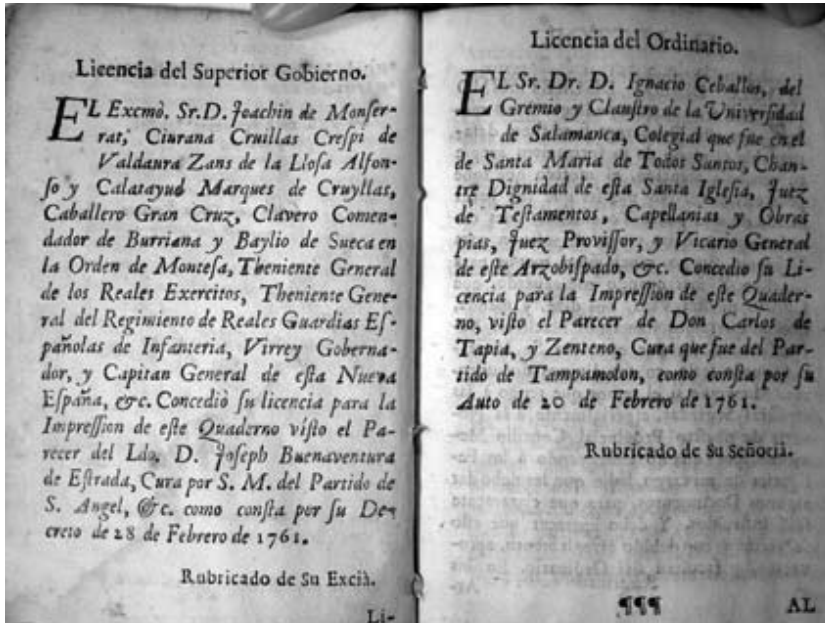 Licencia del Superior Gobierno.
EL Excmò. Sr. D. Joachin de Monser-
rat, Ciurana Cruillas Crespi de
Valdaura Zans de la Llosa Alfon-
ſo y Calatayud Marques de Cruyllas,
Caballero Gran Cruz, Clavero Comen-
dador de Burriana y Baylio de Sueca en
la Orden de Monteſa, Theniente General
de los Reales Exercitos, Theniente Gene-
ral del Regimiento de Reales Guardias Eſ-
pañolas de Infanteria, Virrey Goberna-
dor, y Capitan General de eſta Nueva
Eſpaña, &c. Concediò ſu licencia para la
Impreſſion de eſte Quaderno viſto el Pa-
recer del Ldo. D. Joſeph Buenaventura
de Eſtrada, Cura por S. M. del Partido de
S. Angel, &c. como conſta por ſu De-
creto de 28 de Febrero de 1761.
Rubricado de Su Excià.
Li-
Licencia del Ordinario.
EL Sr. Dr. D. Ignacio Ceballos, del
Gremio y Clauſtro de la Univerſidad
de Salamanca, Colegial que fue en el
de Santa Maria de Todos Santos, Chan-
tre Dignidad de eſta Santa Igleſia, Juez
de Teſtamentos, Capellanias y Obras
pias, Juez Proviſſor, y Vicario General
de eſte Arzobiſpado, &c. Concedio ſu Li-
cencia para la Impreſſion de eſte Quader-
no, viſto el Parecer de Don Carlos de
Tapia, y Zenteno, Cura que fue del Par-
tido de Tampamolon, como conſta por ſu
Auto de 20 de Febrero de 1761.
Rubricado de Su Señorià.
¶¶¶ AL